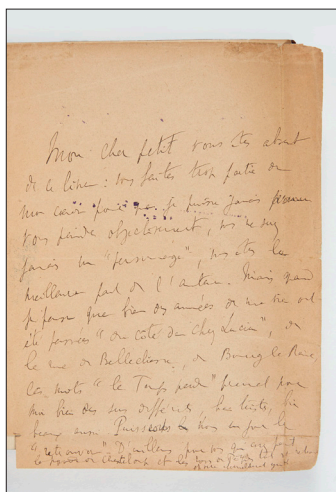 Mon cher petit vous êtes absent
de ce livre : vous faites trop partie de
mon cœur pour que je puisse jamais
vous peindre objectivement, vous ne serez
jamais un "personnage", vous êtes la
meilleure part de l'auteur. Mais quand
je pense que bien des années de ma vie ont
été passées "du côté de chez Lucien", de
la rue de Bellechasse, de Bourg-la-Reine
Ces mots "le Temps perdu" prennent pour
moi bien des sens différents, bien tristes, bien
beaux aussi. Puissions nous un jour le
"retrouver". D'ailleurs pour vous